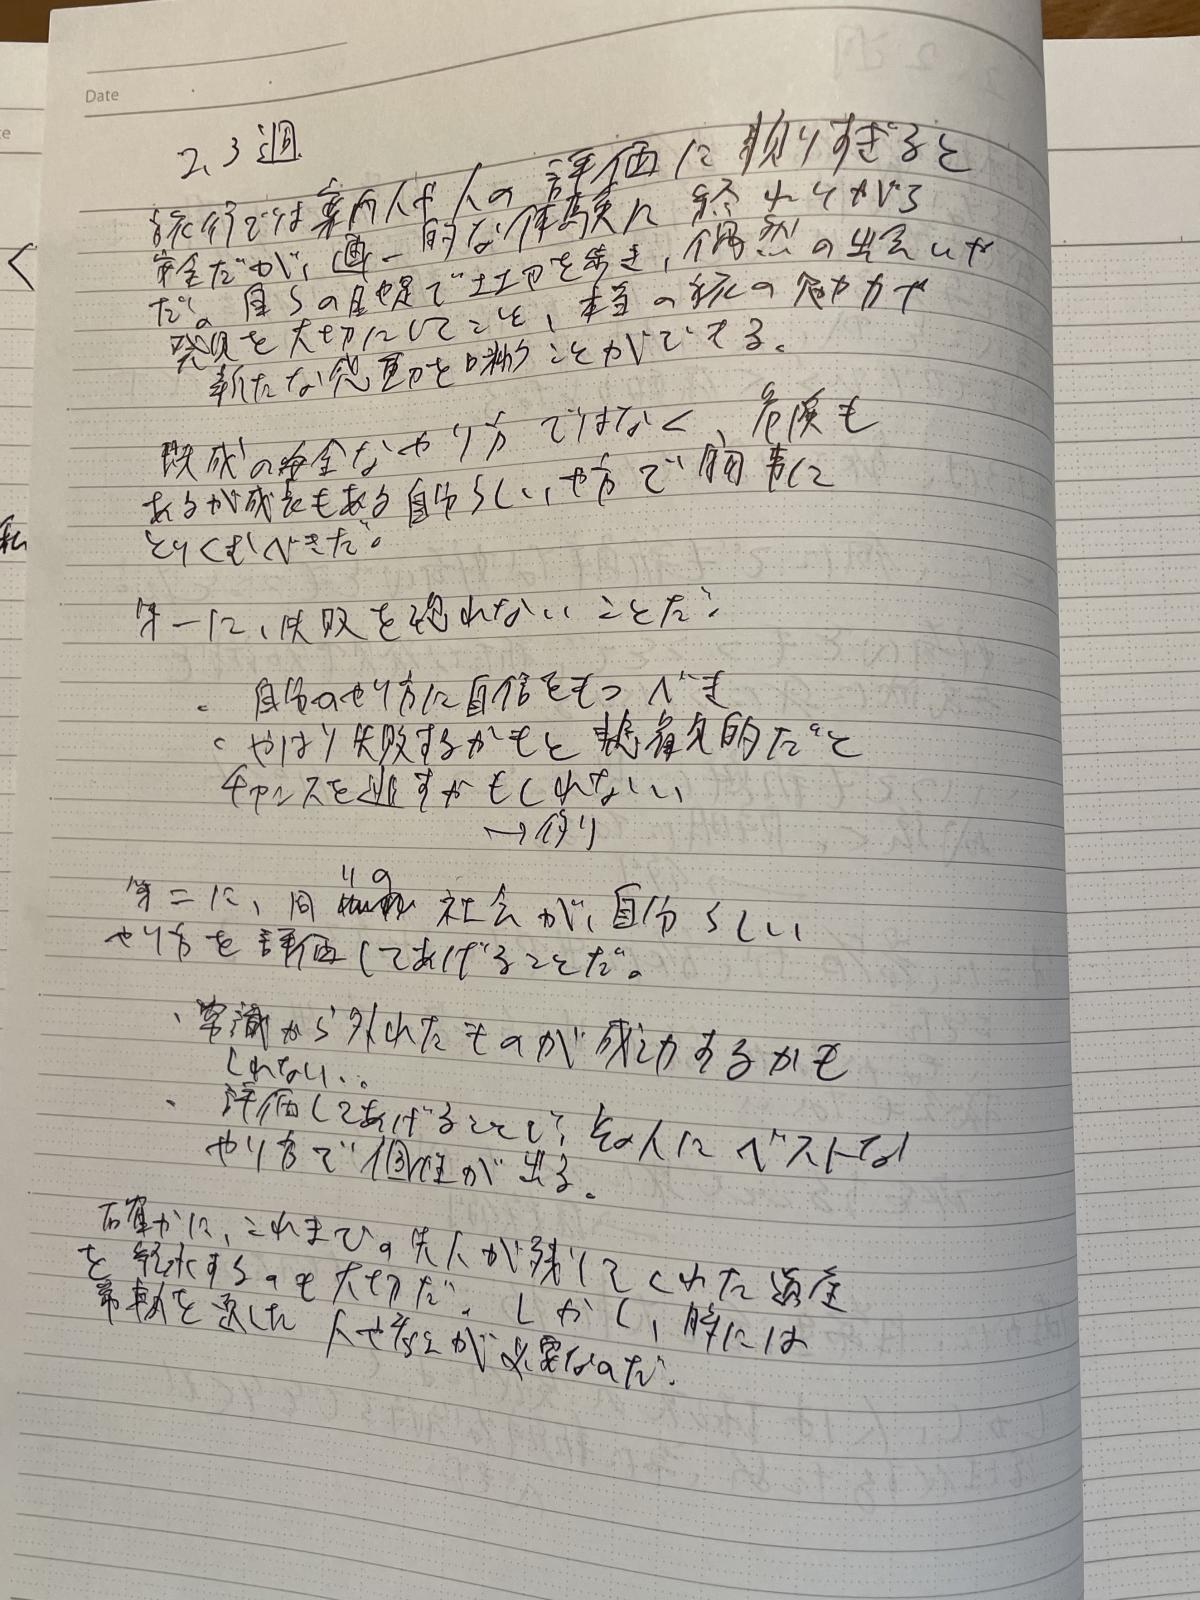 Date
2.3週
旅行では案内人や人の評価に頼りすぎると
安全だが、画一的な体験に終わりがち
だ。自らの足で土地を歩き、偶然の出会いや
発見を大切にしてこそ、本当の旅の魅力や
新たな感動を味わうことができる。
既成の安全なやり方ではなく、危険も
あるが成長もある自分らしいやり方で物事に
とりくむべきだ。
第一に、失敗を恐れないことだ。
・自分のやり方に自信をもつべき
・やはり失敗するかもと悲観的だと
チャンスを逃すかもしれない
→作り
第二に、周りの社会が、自分らしい
やり方を評価してあげることだ。
・常識から外れたものが成功するかも
しれない。
・評価してあげることで、その人にベストな
やり方で個性が出る。
確かに、これまでの先人が残してくれた遺産
を継承するのも大切だ。しかし、時には
常軌を逸した人や考えが必要なのだ。